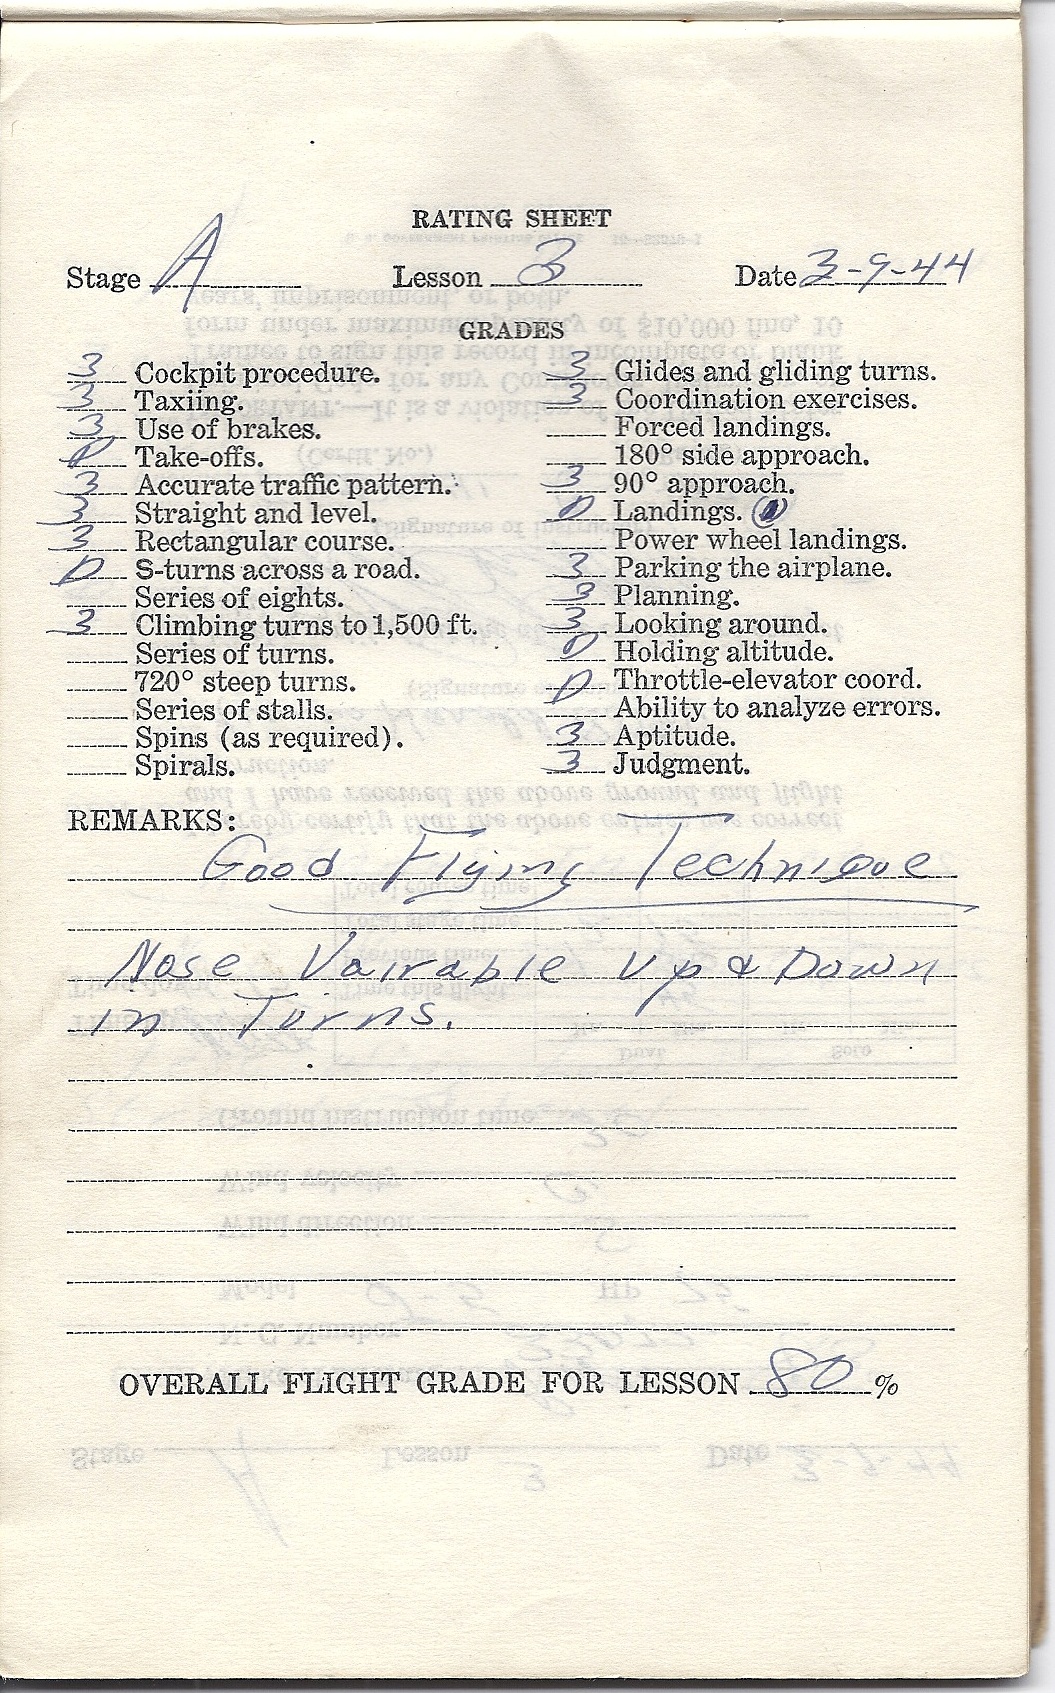 RATING SHEET
Stage A Lesson 3 Date 3-9-44
GRADES
3 Cockpit procedure.
3 Taxiing.
3 Use of brakes.
D Take-offs.
3 Accurate traffic pattern.
3 Straight and level.
3 Rectangular course.
D S-turns across a road.
Series of eights.
3 Climbing turns to 1,500 ft.
Series of turns.
720° steep turns.
Series of stalls.
Spins (as required).
Spirals.
3 Glides and gliding turns.
3 Coordination exercises.
Forced landings.
180° side approach.
3 90° approach.
D Landings.
Power wheel landings.
3 Parking the airplane.
3 Planning.
3 Looking around.
D Holding altitude.
D Throttle-elevator coord.
Ability to analyze errors.
3 Aptitude.
3 Judgment.
REMARKS:
Good Flying Technique
Nose Vairable Up & Down
in Turns.
OVERALL FLIGHT GRADE FOR LESSON 80 %